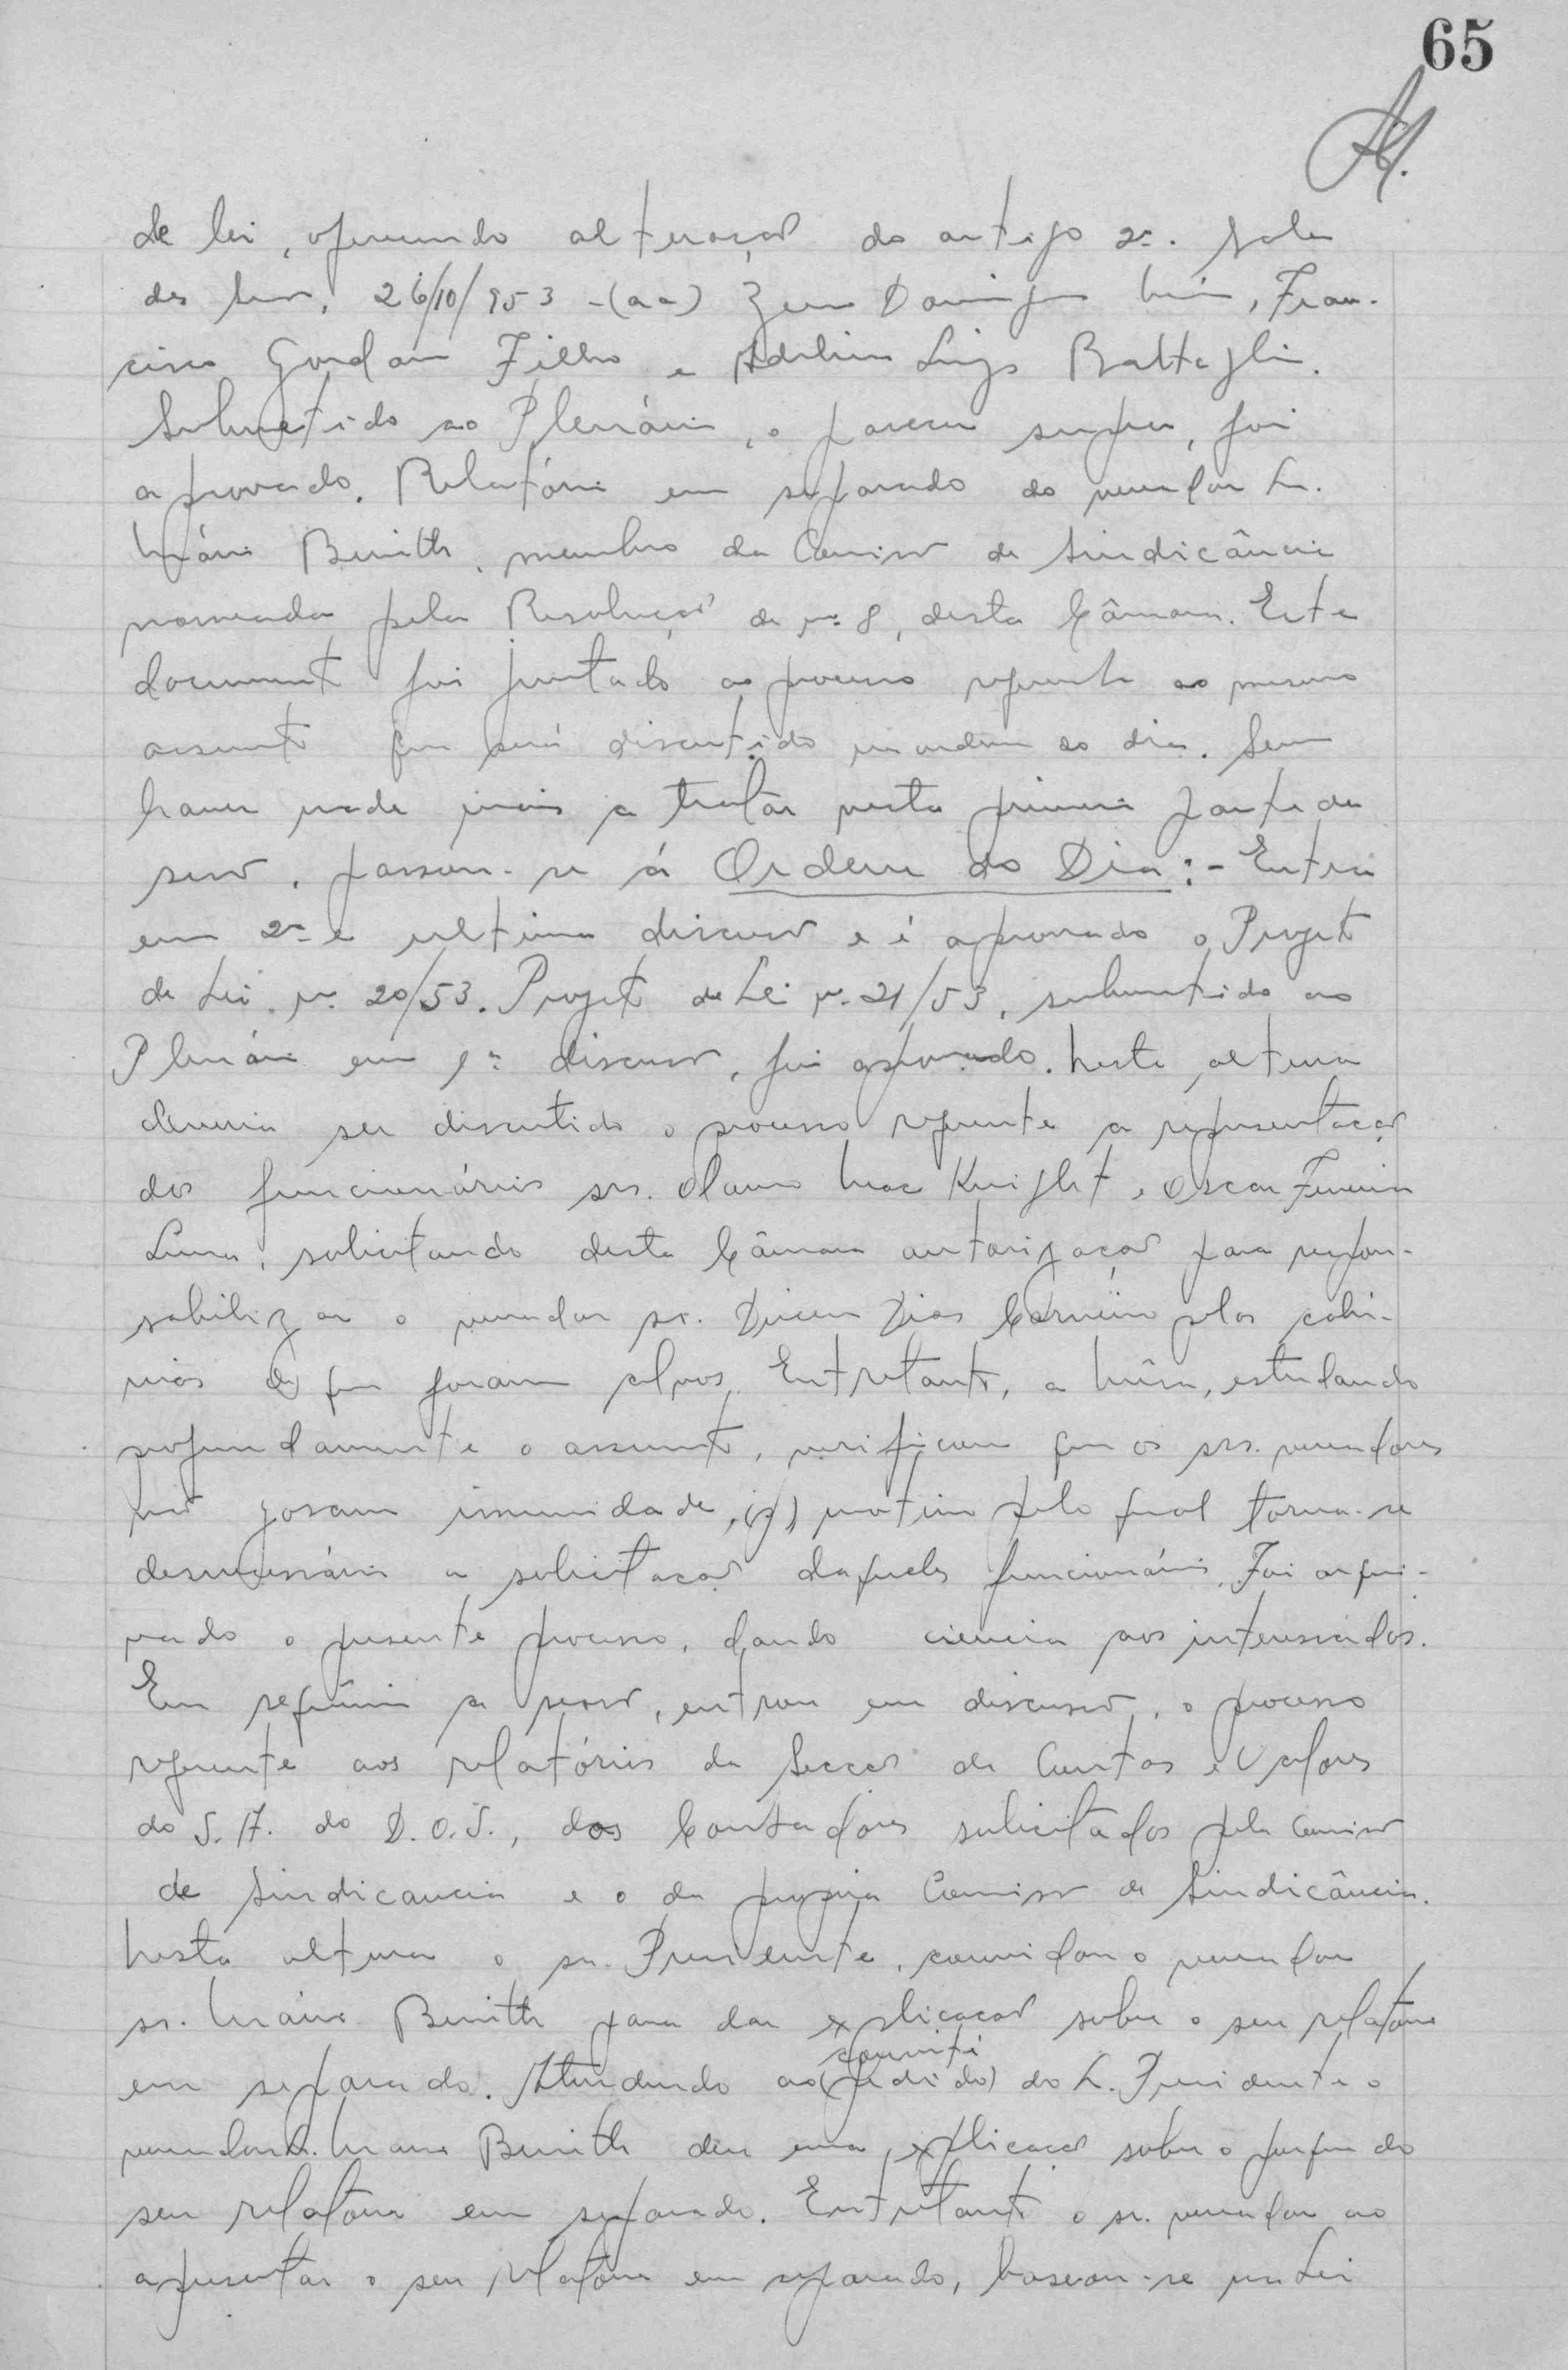 65
de lei, oferecendo alteração do artigo 2º. Sala
das Sess, 26/10/953 -(aa) Domingos, Fran-
cisco Filho e Adelino Luigi Battagli.
Submetido ao Plenário, o parecer supra, foi
aprovado. Relatório em separado do vereador Sr.
Mário Benith, membro da Comissão de Sindicância
nomeada pela Resolução de nº 8, desta Câmara. Este
documento foi juntado ao processo referente ao mesmo
assunto que será discutido na ordem do dia. Sem
haver nada mais a tratar nesta primeira parte da
sessão, passou-se á Ordem do Dia:- Entra
em 2ª e ultima discussão e é aprovado o Projeto
de Lei nº 20/53. Projeto de Lei nº 21/53, submetido ao
Plenário em 1ª discussão, foi aprovado. Nesta altura
deveria ser discutido o processo referente a representação
dos funcionários srs. Olavo Mac Knight e Oscar Ferreira
Lima, solicitando desta Câmara autorização para respon-
sabilizar o vereador sr. Dirceu Dias Carneiro pelas calú-
nias de que foram alvos. Entretanto, a Mêsa, estudando
profundamente o assunto, verificou que os srs. vereadores
não gosam imunidade, motivo pelo qual torna-se
desnecessário a solicitação daqueles funcionários. Foi arqui-
vado o presente processo, dando ciencia aos interessados.
Em seguimento a sessão, entrou em discussão, o processo
referente aos relatórios da Secção de Contas e Valores
do S.A. do D.O.S., dos Contadores solicitados pela Comissão
de Sindicancia e o da propria Comissão de Sindicância.
Nesta altura o sr. Presidente, convidou o vereador
sr. Mário Benith para dar explicação sobre o seu relatório
convite
em separado. Atendendo ao (pedido) do Sr. Presidente o
vereador Sr. Mario Benith deu uma explicação sobre o porque do
seu relatório em separado. Entretanto o sr. vereador ao
apresentar o seu relatório em separado, baseou-se na Lei